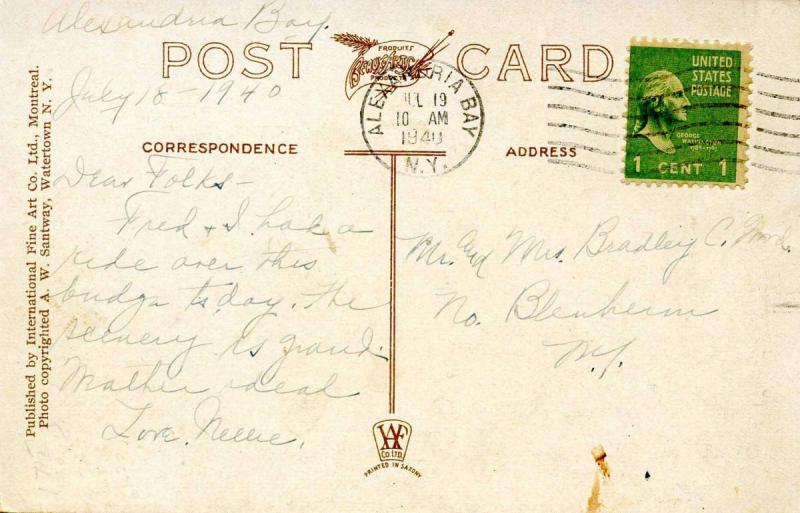 Alexandria Bay.
POST CARD
PRODUITS
BEAUX ARTS
PRODUCTS
July 18 - 1940
ALEXANDRIA BAY
JUL 19
10 AM
1940
N.Y.
UNITED
STATES
POSTAGE
GEORGE
WASHINGTON
1789-1797
1 CENT 1
CORRESPONDENCE
ADDRESS
Dear Folks -
Fred & I had a
ride over this
bridge today. The
scenery is grand.
Weather ideal
Love. Nellie.
Mr. and Mrs. Bradley C.
No. Blenheim
N.Y.
Published by International Fine Art Co. Ltd., Montreal.
Photo copyrighted A. W. Santway, Watertown N. Y.
CO. LTD.
PRINTED IN SAXONY